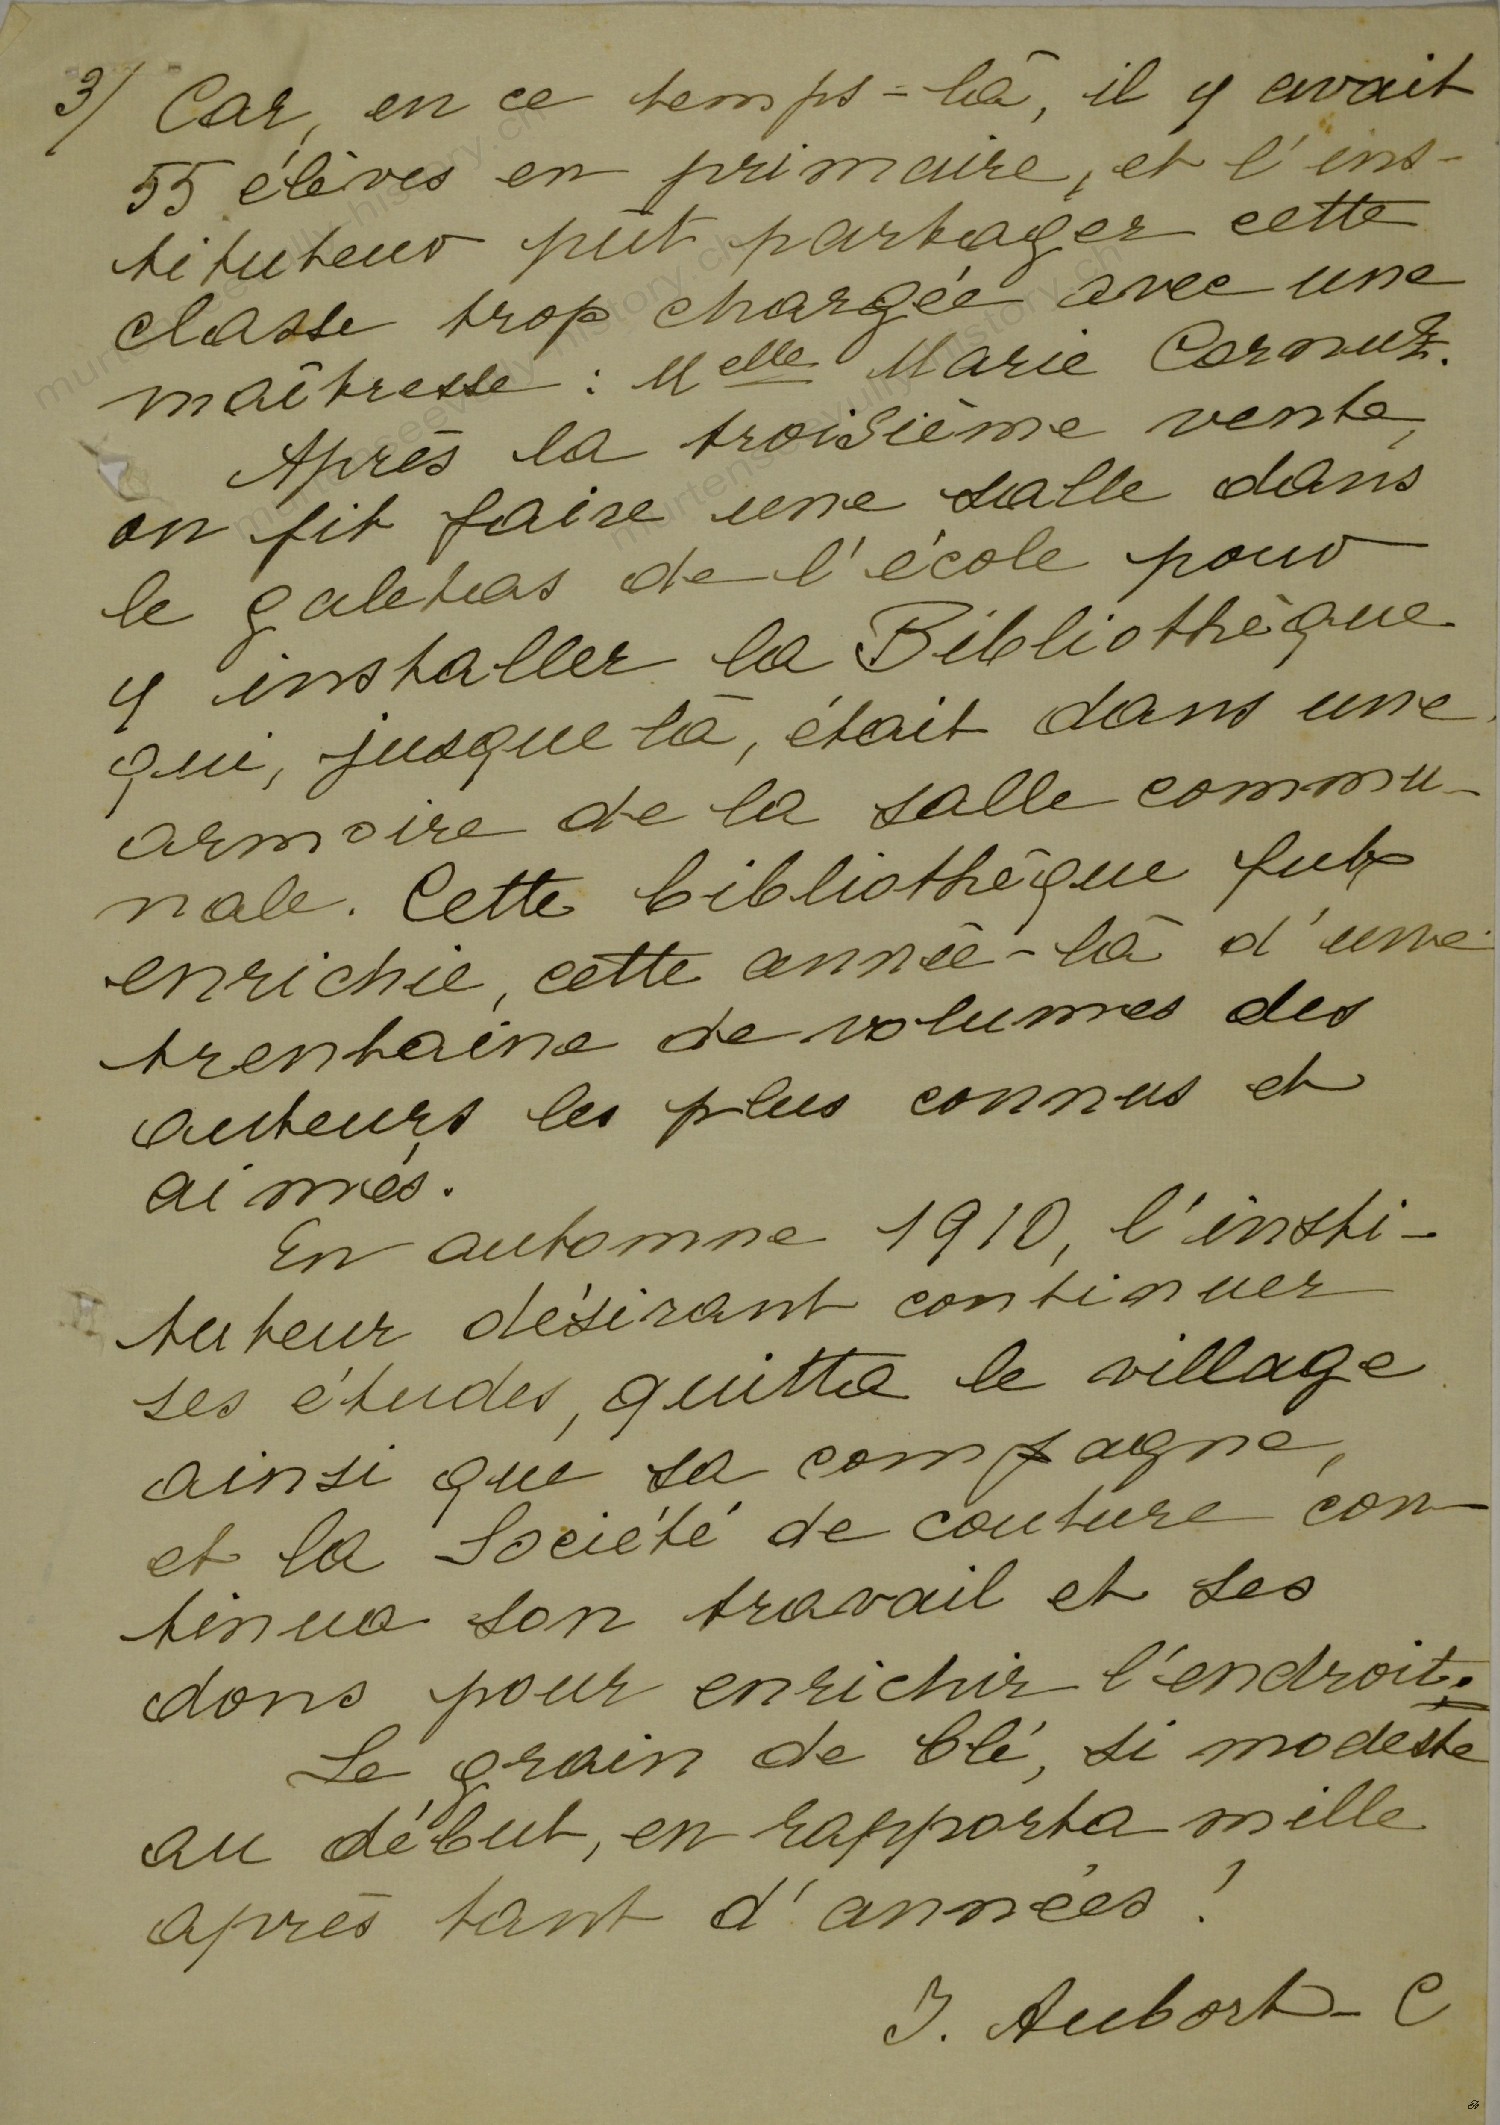 3/ Car, en ce temps-là, il y avait
55 élèves en primaire, et l'ins-
tituteur pût partager cette
classe trop chargée avec une
maîtresse : Melle Marie Cornuz.
Après la troisième vente,
on fit faire une salle dans
le galetas de l'école pour
y installer la Bibliothèque
qui, jusque là, était dans une
armoire de la salle commu-
nale. Cette bibliothèque fut
enrichie, cette année-là d'une
trentaine de volumes des
auteurs les plus connus et
aimés.
En automne 1910, l'insti-
tuteur désirant continuer
ses études, quitta le village
ainsi que sa compagne,
et la Société de couture con-
tinua son travail et ses
dons pour enrichir l'endroit.
Le grain de blé, si modeste
au début, en rapporta mille
après tant d'années !
J. Aubort-C